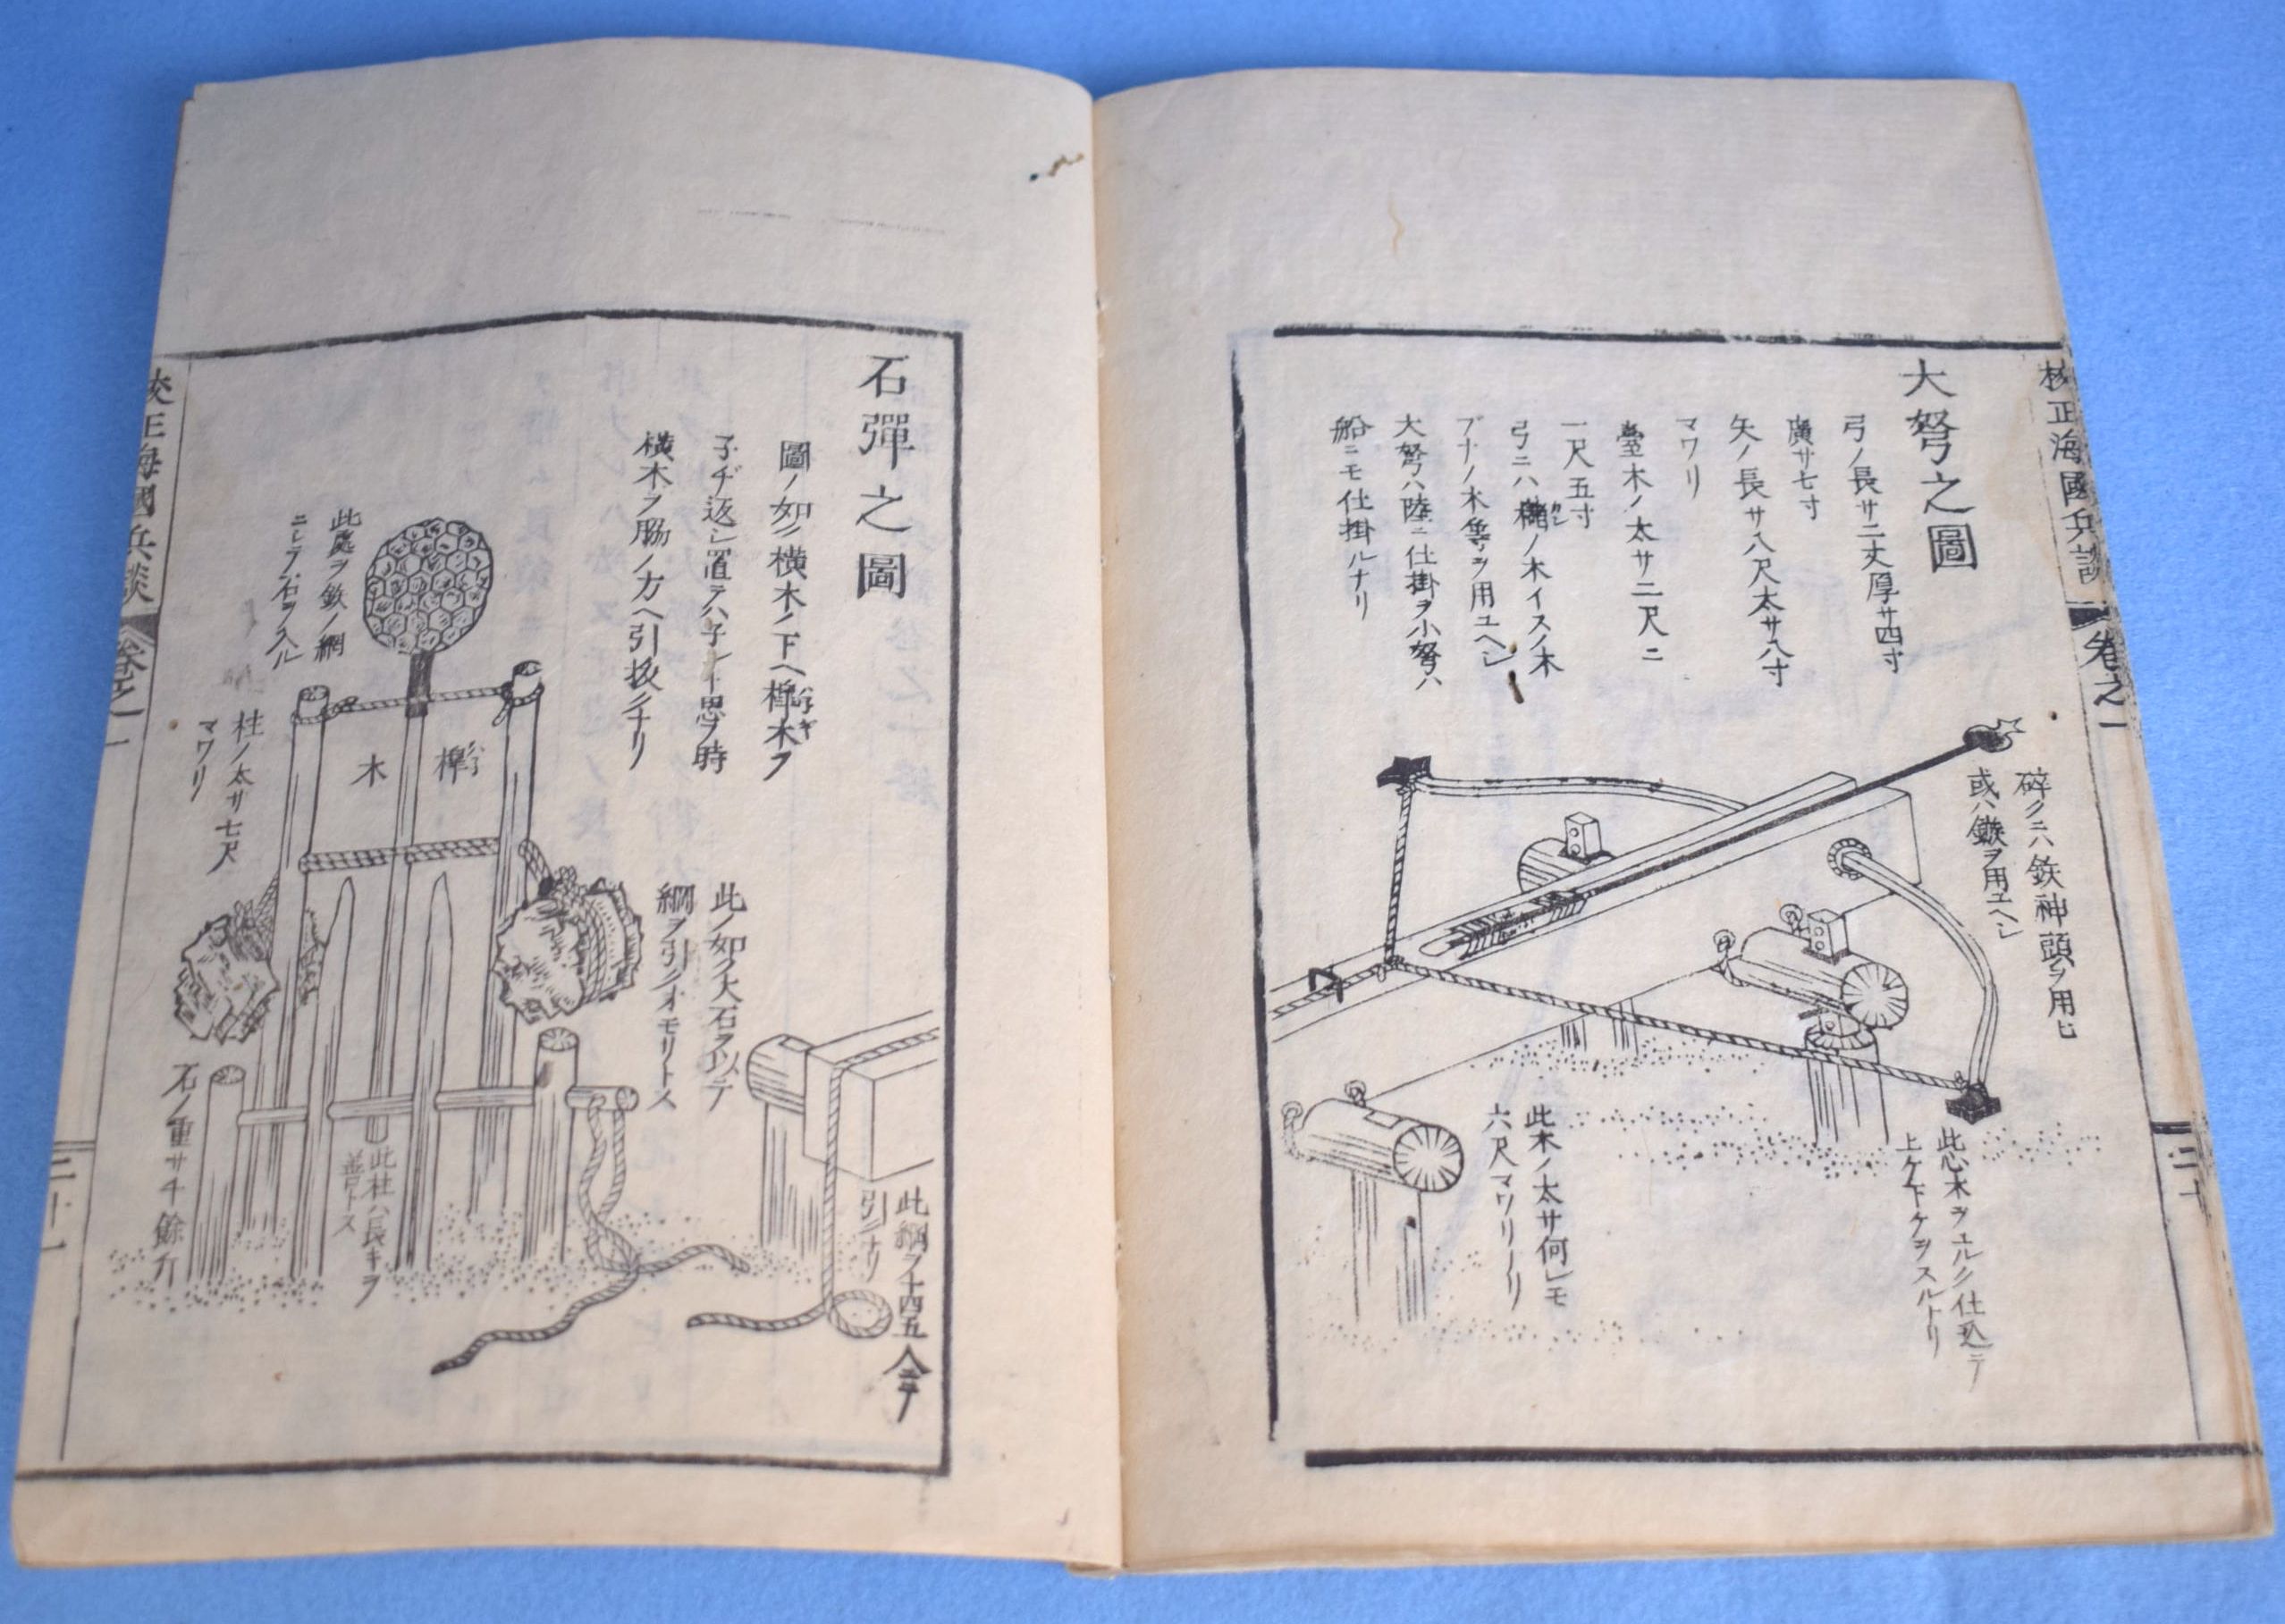 校正海國兵談
卷之一
二十
大弩之圖
弓ノ長サ二丈厚サ四寸
廣サ七寸
矢ノ長サ八尺太サ八寸
マワリ
臺木ノ太サ二尺ニ
一尺五寸
弓ニハ櫧ノ木イスノ木
ブナノ木等ヲ用ユヘシ
大弩ハ陸ニ仕掛ヲ小弩ハ
船ニモ仕掛ルナリ
碎クニハ鉄神頭ヲ用ヒ
或ハ鏃ヲ用ユヘシ
此木ヲユルク仕込テ
上ケ下ケヲスルナリ
此木ノ太サ何レモ
六尺マワリ
石彈之圖
圖ノ如ク横木ノ下ヘ木ヲ
子ヂ返シ置テハ子ント思フ時
横木ヲ脇ノ方ヘ引拔クナリ
此處ヲ鉄ノ網
ニシテ石ヲ入ル
木
柱ノ太サ七尺
マワリ
此ノ如ク大石ヲ以テ
綱ヲ引クオモリトス
石ノ重サ千餘斤
此柱ハ長キヲ
善トス
此綱ヲ十四五人ニテ
引ナリ
校正海國兵談
卷之一
二十一